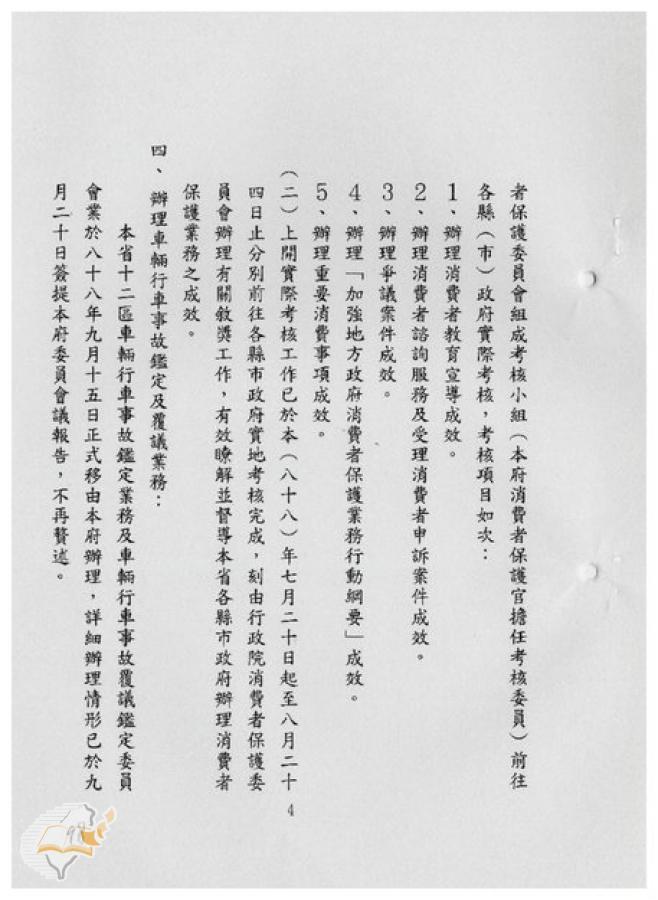 者保護委員會組成考核小組（本府消費者保護官擔任考核委員）前往
各縣（市）政府實際考核，考核項目如次：
1、辦理消費者教育宣導成效。
2、辦理消費者諮詢服務及受理消費者申訴案件成效。
3、辦理爭議案件成效。
4、辦理「加強地方政府消費者保護業務行動綱要」成效。
5、辦理重要消費事項成效。
（二）上開實際考核工作已於本（八十八）年七月二十日起至八月二十
四日止分別前往各縣市政府實地考核完成，刻由行政院消費者保護委
員會辦理有關敘獎工作，有效瞭解並督導本省各縣市政府辦理消費者
保護業務之成效。
四、辦理車輛行車事故鑑定及覆議業務：
本省十二區車輛行車事故鑑定業務及車輛行車事故覆議鑑定委員
會業於八十八年九月十五日正式移由本府辦理，詳細辦理情形已於九
月二十日簽提本府委員會議報告，不再贅述。
4